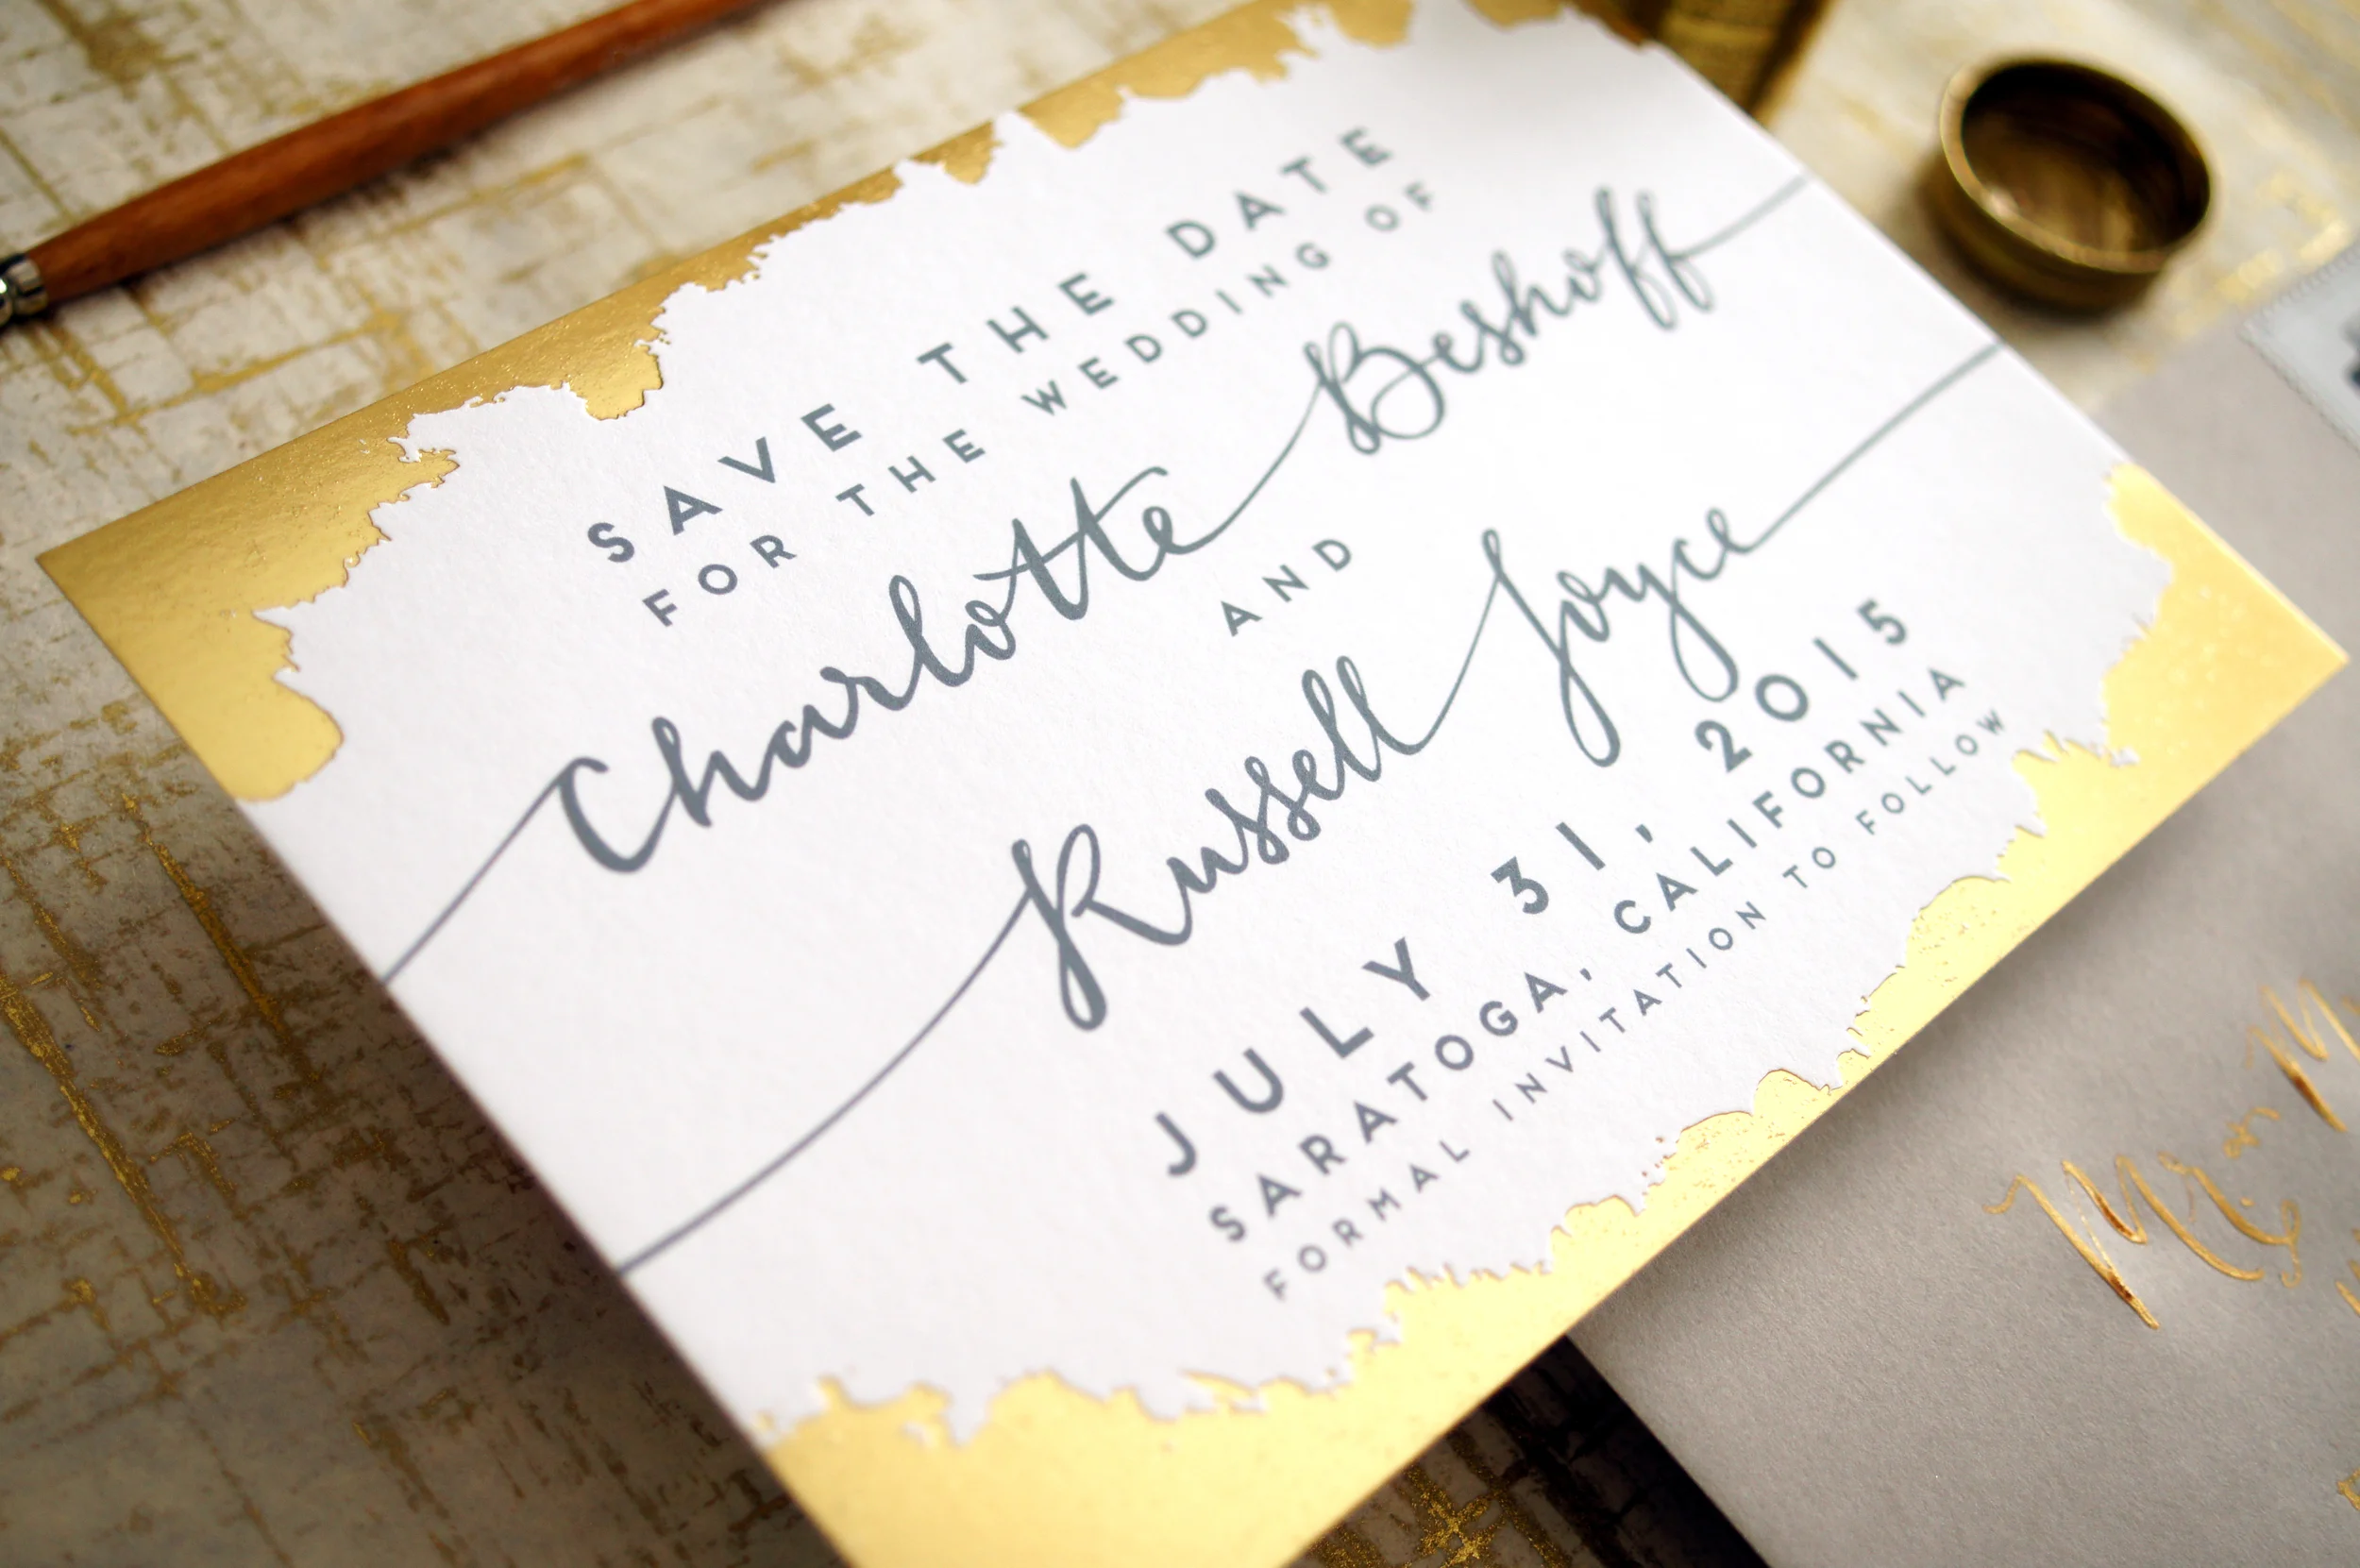 SAVE THE DATE
FOR THE WEDDING OF
Charlotte Beshoff
AND
Russell Joyce
JULY 31, 2015
SARATOGA, CALIFORNIA
FORMAL INVITATION TO FOLLOW
Mr.